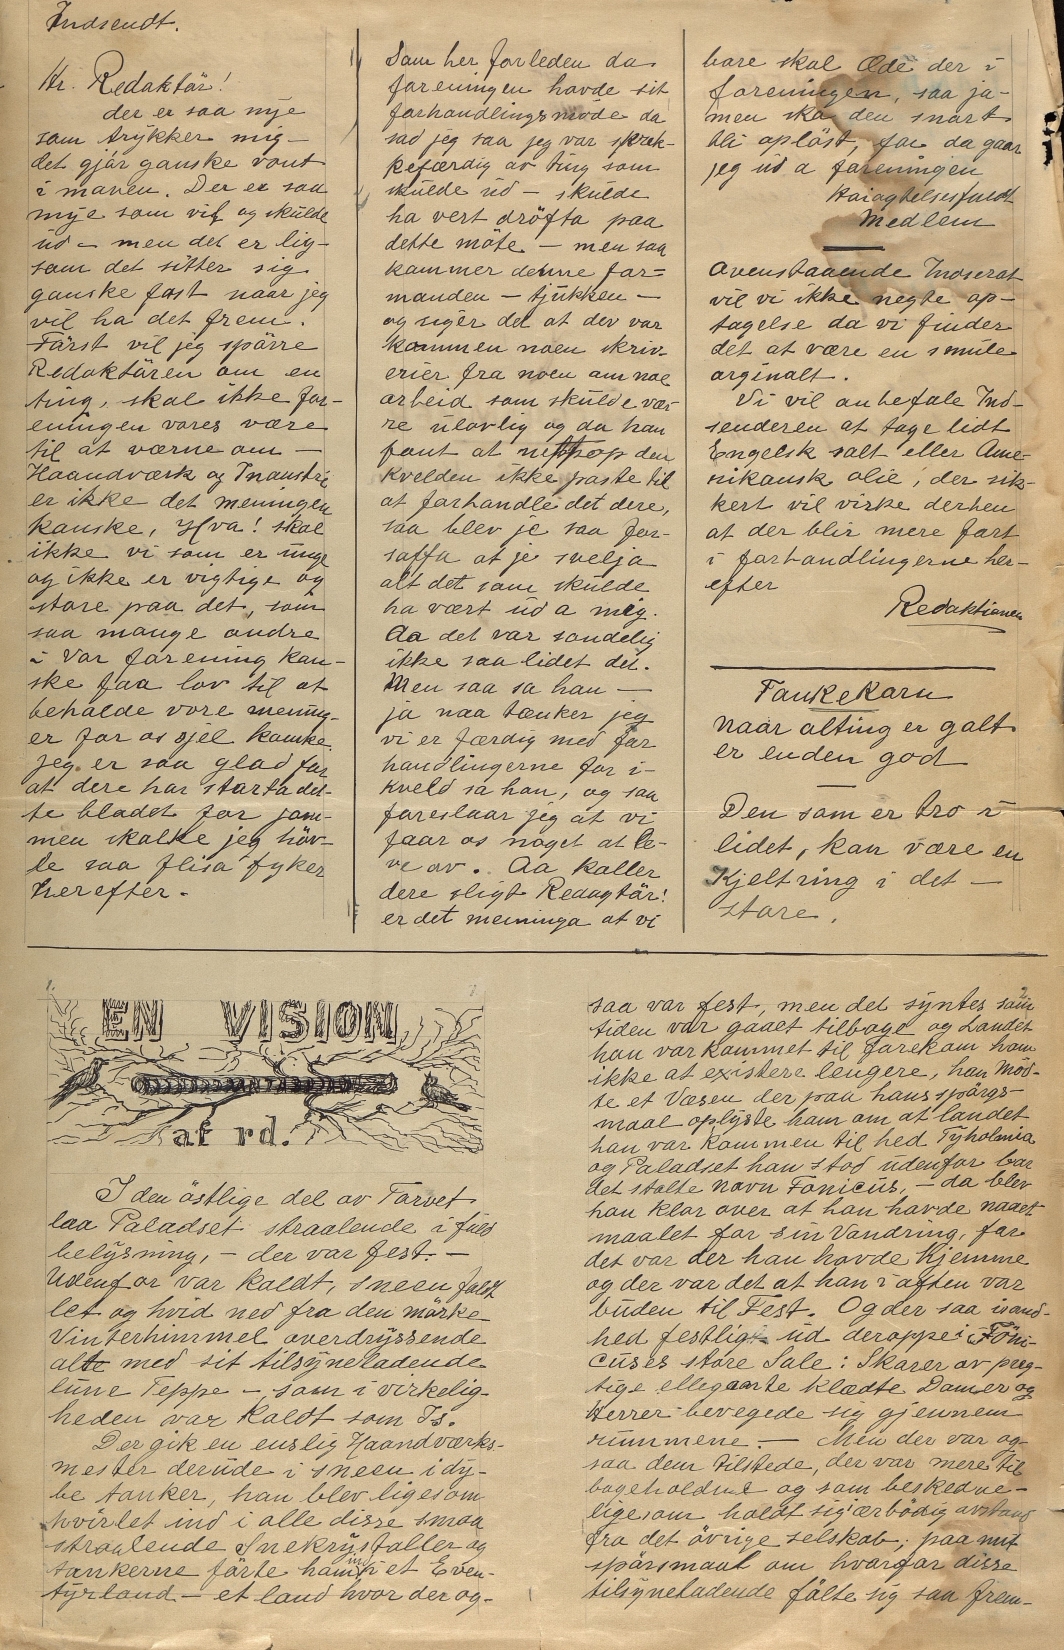 Indsendt.
Hr. Redaktär!
der er saa mye
som trykker mig -
det gjör ganske vont
i maven. Der er saa
mye som vil og skulde
ud - men det er lig-
som det sitter sig
ganske fast naar jeg
vil ha det frem.
Först vil jeg spörre
Redaktören om en
ting, skal ikke for-
eningen vores være
til at værne om -
Haandværk og Industri
er ikke det meningen
kanske, Hva! skal
ikke vi som er unge
og ikke er vigtige og
store paa det, som
saa mange andre
i vor forening kan-
ske faa lov til at
beholde vore mening-
er for os sjel kanske.
jeg er saa glad for
at dere har starta det-
te bladet for jam-
men skalke jeg höv-
le saa flisa fyker
herefter -
Som her forleden da
foreningen havde sit
forhandlingsmöde da
sad jeg saa jeg var spræk-
kefærdig av ting som
skulde ud - skulde
ha vert dröfta paa
dette möte - men saa
kommer denne for=
manden - tjukken -
og siger det at der var
kommen noen skriv-
erier fra noen om noe
arbeid som skulde væ-
re ulovlig og da han
fant at nettop den
kvelden ikke paste til
at forhandle det dere,
saa blev je saa for-
soffa at je svelja
alt det som skulde
ha vært ud a mig.
Aa det var sandelig
ikke saa lidet det.
Men saa sa han -
ja naa tænker jeg
vi er færdig med for
handlingerne for i-
kveld sa han, og saa
foreslaar jeg at vi
faar os noget at le-
ve av. Aa kaller
dere sligt Redagtär!
er det meninga at vi
bare skal Æde der i
foreningen, saa ja-
men ska den snart
bli oplöst, for da gaar
jeg ud a foreningen
Höiagtelsesfuldt
Medlem
Ovenstaaende Indserat
vil vi ikke negte op-
tagelse da vi finder
det at være en smule
orginalt.
Vi vil anbefale Ind-
senderen at tage lidt
Engelsk salt eller Ame-
rikansk olie, der sik-
kert vil virke derhen
at der blir mere fart
i forhandlingerne her-
efter
Redaktionen
Tankekorn
naar alting er galt
er enden god
Den som er tro i
lidet, kan være en
Kjeltring i det -
store.
1.
EN VISION
af rd.
I den östlige del av Torvet
laa Paladset straalende i fuld
belysning, - der var fest. -
Udenfor var koldt, sneen faldt
let og hvid ned fra den mörke
Vinterhimmel overdryssende
alt med sit tilsyneladende
lune Teppe - som i virkelig-
heden var koldt som Is.
Der gik en enslig Haandværks-
mester derude i sneen i dy-
be tanker, han blev ligesom
hvirlet ind i alle disse smaa
straalende Snekrystaller og
tankerne förte ham ind i et Even-
tyrland - et land hvor der og-
2
saa var fest, men det syntes som
tiden var gaaet tilbage og Landet
han var kommet til forekom ham
ikke at existere lengere, han Möd-
te et Væsen der paa hans spörgs-
maal oplyste ham om at landet
han var kommen til hed Tyholmia
og Paladset han stod udenfor bar
det stolte navn Fonicus, - da blev
han klar over at han havde naaet
maalet for sin Vandring, for
det var der han havde hjemme
og der var det at han i aften var
buden til Fest. Og der saa isand-
hed festlig ud deroppe i Föni-
cuses store Sale: Skarer av præg-
tige ellegante klædte Damer og
Herrer bevegede sig gjennem
rummene. - Men der var og-
saa dem tilstede, der var mere til
bageholdne og som beskedne-
ligesom holdt sig i ærbödig avstand
fra det övrige selskab; paa mit
spörsmaal om hvorfor disse
tilsyneladende fölte sig saa frem-